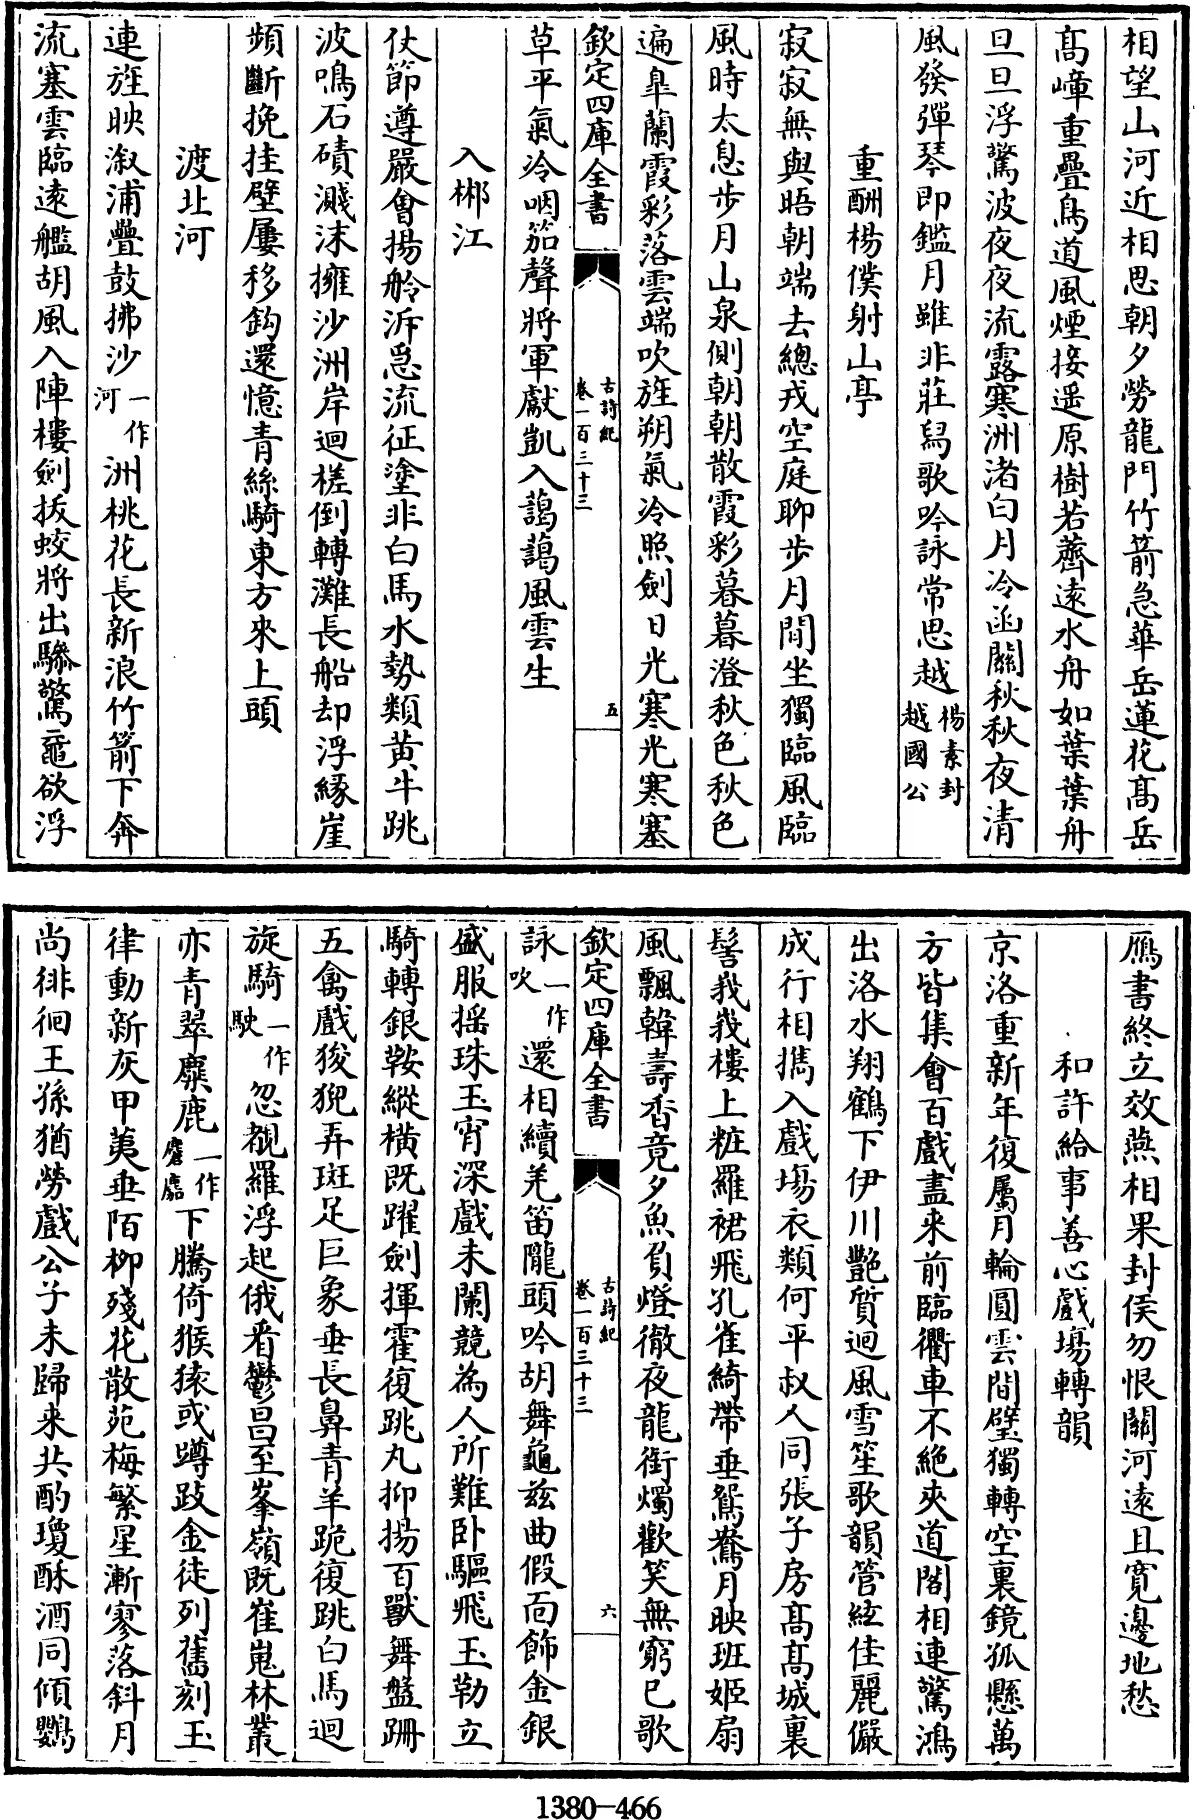 相望山河近相思朝夕勞龍門竹箭急華岳蓮花髙岳
髙嶂重疊鳥道風煙接遥原樹若薺遠水舟如葉葉舟
旦旦浮驚波夜夜流露寒洲渚白月冷函關秋秋夜清
風發彈琴即鑑月雖非莊舄歌吟詠常思越楊素封越國公
重酬楊僕射山亭
寂寂無與晤朝端去總戎空庭聊步月閒坐獨臨風臨
風時太息步月山泉側朝朝散霞彩暮暮澄秋色秋色
遍臯蘭霞彩落雲端吹旌朔氣冷照劍日光寒光寒塞
欽定四庫全書 古詩紀 卷一百三十三 五
草平氣冷咽笳聲將軍獻凱入藹藹風雲生
入郴江
仗節遵嚴會揚舲泝急流征塗非白馬水勢類黄牛跳
波鳴石磧濺沫擁沙洲岸迴槎倒轉灘長船却浮緣崖
頻斷挽挂壁屢移鈎還憶青絲騎東方來上頭
渡北河
連旌映溆浦疊鼓拂沙一作河洲桃花長新浪竹箭下奔
流塞雲臨遠艦胡風入陣樓劍拔蛟將出驂驚黿欲浮
鴈書終立效燕相果封侯勿恨關河遠且寛邊地愁
和許給事善心戲塲轉韻
京洛重新年復屬月輪圓雲間璧獨轉空裏鏡孤懸萬
方皆集會百戲盡來前臨衢車不絶夾道閣相連驚鴻
出洛水翔鶴下伊川艷質迴風雪笙歌韻管絃佳麗儼
成行相攜入戲塲衣類何平叔人同張子房髙髙城裏
髻峩峩樓上粧羅裙飛孔雀綺帶垂鴛鴦月映班姬扇
風飄韓壽香竟夕魚負燈徹夜龍銜燭歡笑無窮已歌
欽定四庫全書 古詩紀 卷一百三十三 六
詠一作吹還相續羌笛隴頭吟胡舞龜兹曲假面飾金銀
盛服摇珠玉宵深戲未闌競為人所難卧驅飛玉勒立
騎轉銀鞍縱橫既躍劍揮霍復跳丸抑揚百獸舞盤跚
五禽戲狻猊弄斑足巨象垂長鼻青羊跪復跳白馬迴
旋騎一作駛忽覩羅浮起俄看鬱昌至峯嶺既崔嵬林叢
亦青翠麋鹿一作麏麚下騰倚猴猿或蹲跂金徒列舊刻玉
律動新灰甲荑垂陌栁殘花散苑梅繁星漸寥落斜月
尚徘徊王孫猶勞戲公子未歸來共酌瓊酥酒同傾鸚
1380—466